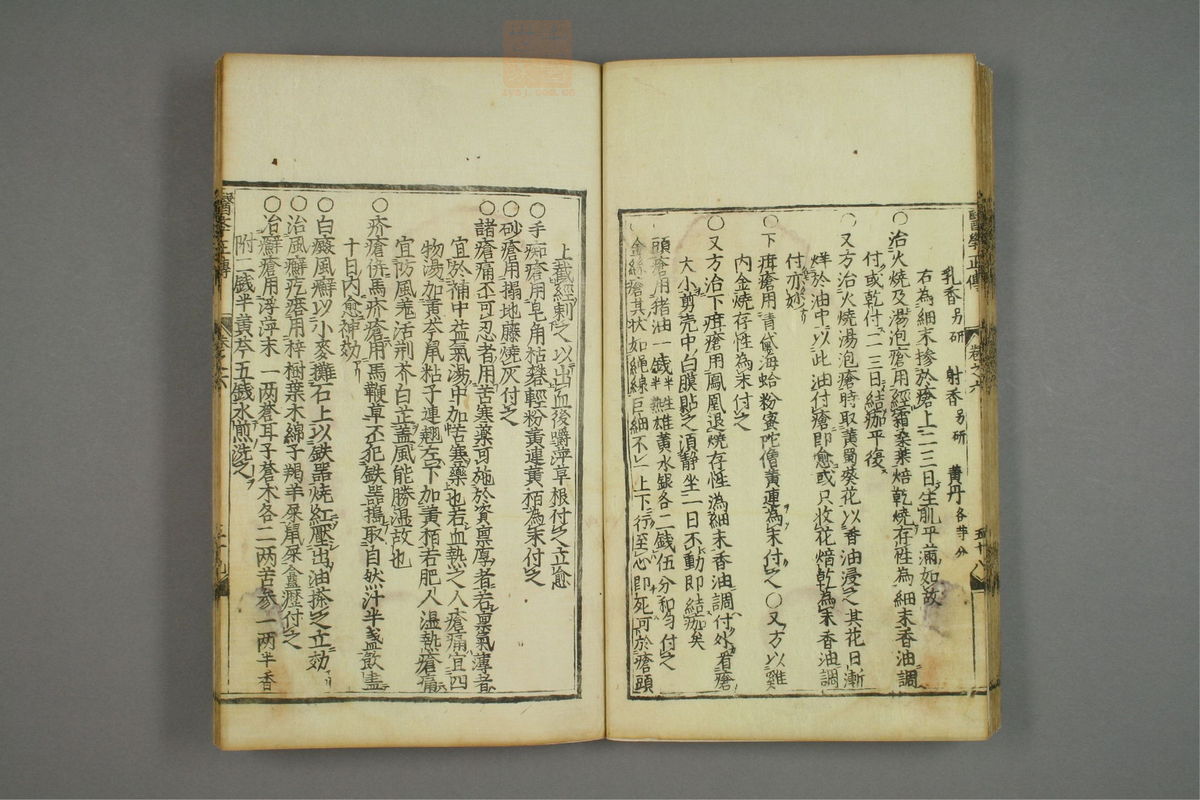 醫學正傳 卷之六 五十八
乳香另研 射香另研 黄丹各等分
右為細末摻於瘡上二三日生肌平滿如故
○治火燒及湯泡瘡用經霜桑葉焙乾燒存性為細末香油調
付或乾付二三日結痂平復
○又方治火燒湯泡瘡時取黄蜀葵花以香油浸之其花日漸
烊於油中以此油付瘡即愈或只收花焙乾為末香油調
付亦妙
○下疳瘡用青黛海蛤粉蜜陀僧黄連為末付之○又方以雞
内金燒存性為末付之
○又方治下疳瘡用鳳凰退燒存性為細末香油調付外看瘡
大小剪壳中白膜貼之湏靜坐一日不動即結痂矣
頭瘡用猪油一錢半生半熟雄黄水銀各二錢伍分和匀付之
金絲瘡其状如䋲線巨細不一上下行至心即死可於瘡頭
上截經刺之以出血後嚼萍草根付之立愈
○手痴瘡用皂角枯礬輕粉黄連黄栢為末付之
○砂瘡用搨地藤燒灰付之
○諸瘡痛不可忍者用苦寒藥可施於資禀厚者若禀氣薄者
宜於補中益氣湯中加苦寒藥也若血熱之人瘡痛宜四
物湯加黄芩鼠粘子連翹在下加黄栢若肥人濕熱瘡痛
宜防風羗活荆芥白芷盖風能勝濕故也
○疥瘡併馬疥瘡用馬鞭草不犯鉄器搗取自然汁半盞飲盡
十日内愈神効
○白癜風癬以小麥攤石上以鉄器燒紅壓出油搽之立効
○治風癬疙瘩用梓樹葉木綿子羯羊屎鼠屎盦瀝付之
○治癬瘡用浮萍末一两蒼耳子蒼术各二两苦參一两半香
附二錢半黄芩五錢水煎洗之